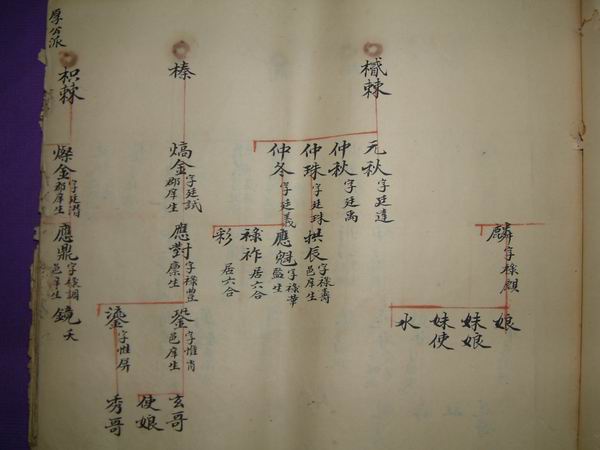 麟 字稼麒
娘
妹娘
妹使
水
棘
元秋 字廷達
仲秋 字廷禹
仲珠 字廷珠
仲冬 字廷義
拱辰 字稼壽 邑庠生
應魁 字稼華 監生
稼祚 居六合
彩 居六合
榛
熇金 字廷試 郡庠生
應對 字稼豐 廪生
鋆 字惟肖 邑庠生
鎏 字惟屏
玄哥
使娘
秀哥
厚公派
枳棘
燦金 郡庠生
應鼎 字稼調 邑庠生
鏡 夭